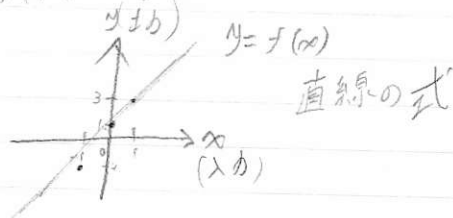 y(出力)
y=f(x)
直線の式
3
1
-1 0 1 x
-1
(入力)